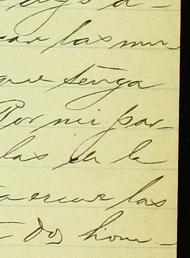 a-
car las mu-
que tenga
Por mi par-
las en la
las
dos hom-